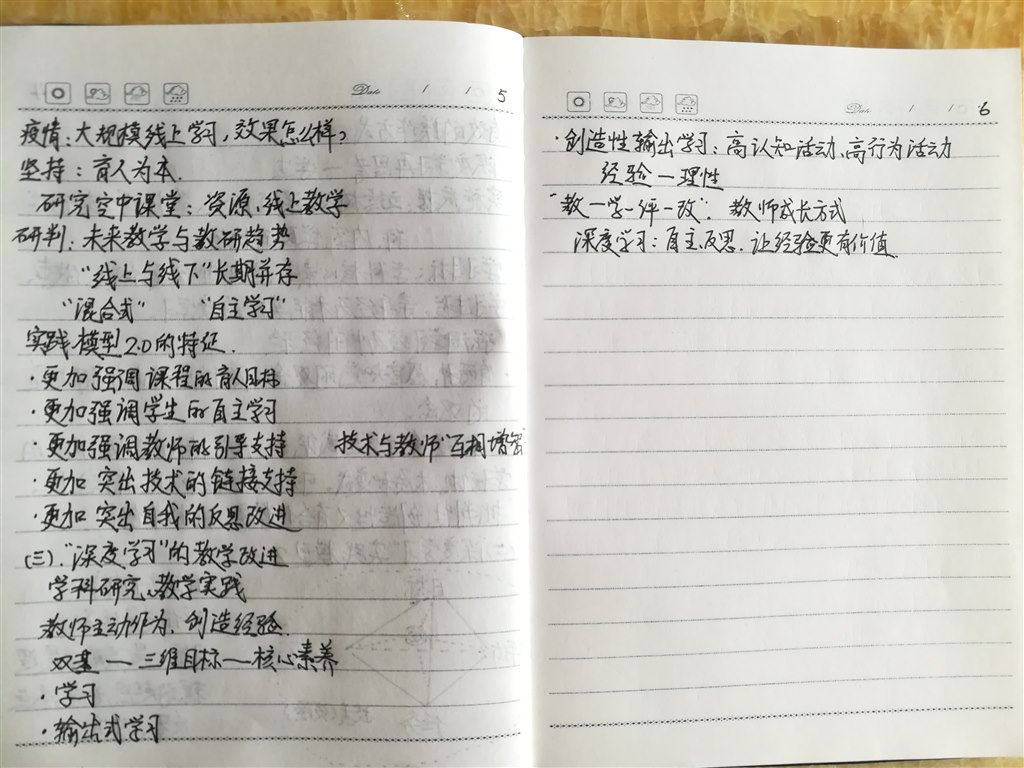 Date / / 5
疫情:大规模线上学习,效果怎么样?
坚持:育人为本.
研究空中课堂:资源、线上教学
研判:未来教学与教研趋势
"线上与线下"长期并存
"混合式" "自主学习"
实践模型2.0的特征.
·更加强调课程的育人目标
·更加强调学生的自主学习
·更加强调教师的引导支持 技术与教师"互相增智"
·更加突出技术的链接支持
·更加突出自我的反思改进
(三)."深度学习"的教学改进
学科研究、教学实践
教师主动作为、创造经验.
双基—三维目标—核心素养
·学习
·输出式学习
Date / / 6
·创造性输出学习:高认知活动、高行为活动
经验—理性
"教—学—评—改". 教师成长方式
深度学习:自主、反思. 让经验更有价值.